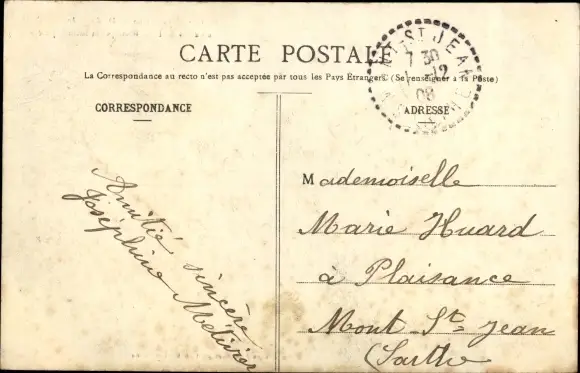 CARTE POSTALE
La Correspondance au recto n'est pas acceptée par tous les Pays Étrangers. (Se renseigner à la Poste)
CORRESPONDANCE
ADRESSE
ST JEAN
7 30
12
08
Amitié sincère
Joséphine Métivier
Mademoiselle
Marie Huard
à Plaisance
Mont-St-Jean
(Sarthe